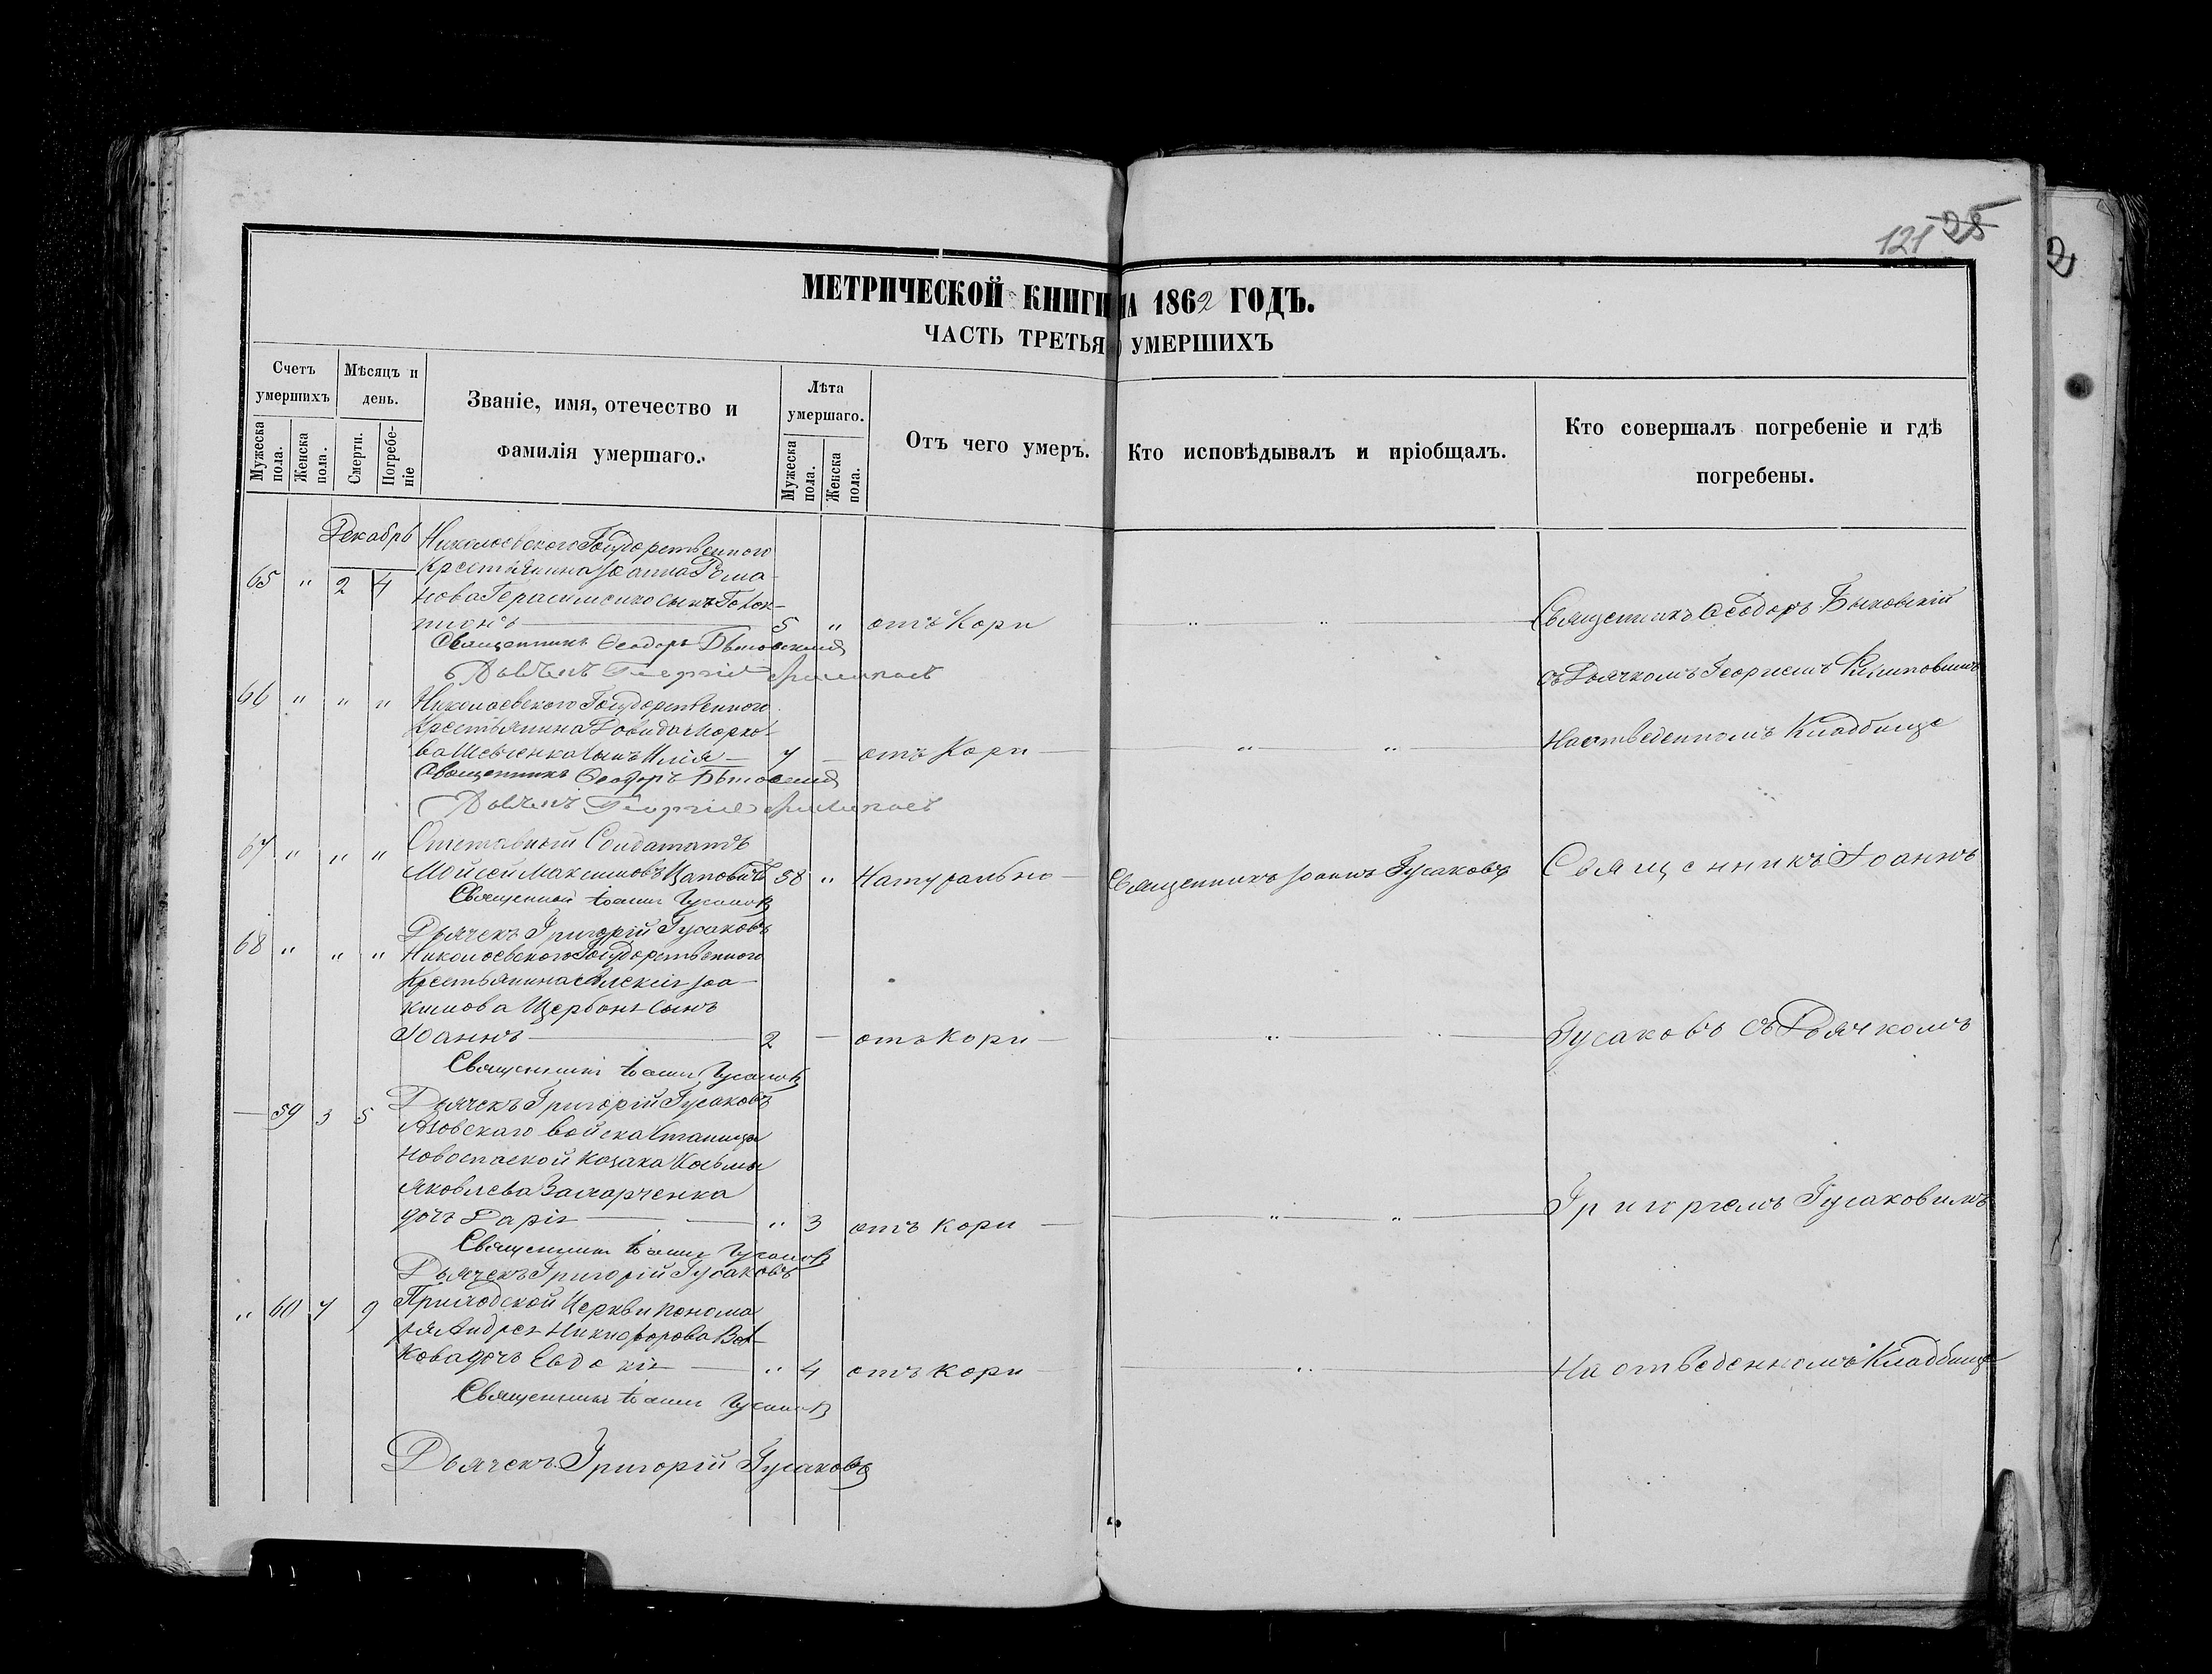 121 25
2
МЕТРИЧЕСКОЙ КНИГИ НА 1862 ГОДЪ.
ЧАСТЬ ТРЕТЬЯ УМЕРШИХЪ
Счетъ умершихъ
Мѣсяцъ и день.
Званіе, имя, отечество и фамилія умершаго.
Лѣта умершаго.
Отъ чего умеръ.
Кто исповѣдывалъ и пріобщалъ.
Кто совершалъ погребеніе и гдѣ погребены.
Мужеска пола.
Женска пола.
Смерти.
Погребе-ніе
Мужеска пола.
Женска пола.
Декабрь
Николаевского Государственного
65 " 2 4 Крестьянина Іоанна Рома-
нова Герасименко сынъ
5 " отъ Кори " "
Священникъ Ѳеодоръ
Священникъ Ѳеодоръ Быковскій
Дьячекъ Георгій
съ Дьячкомъ Георгіемъ
66 " " " Николаевского Государственного
Крестьянина Давида Марко-
ва Шевченка сынъ Илія — 7 — отъ Кори — " "
На отведенномъ Кладбище
Священникъ Ѳеодоръ
Дьячекъ Георгій
67 " " " Отставной Солдатъ
Мойсей Максимовъ 58 " Натурально — Священникъ Іоаннъ Гусаковъ
Священникъ Іоаннъ
Священникъ Іоаннъ Гусаковъ
Дьячекъ Григорій Гусаковъ
68 " " " Николаевского Государственного
Крестьянина Алексія Іоа-
кимова Щербань сынъ
Іоаннъ — 2 — отъ Кори — " "
Гусаковъ съ Дьячкомъ
Священникъ Іоаннъ Гусаковъ
Дьячекъ Григорій Гусаковъ
— 59 3 5 Азовскаго войска станицы
Новоспаской козака Косьмы
Яковлева
дочь Дарія — " 3 отъ кори — " "
Григоріемъ Гусаковимъ
Священникъ Іоаннъ Гусаковъ
Дьячекъ Григорій Гусаковъ
" 60 7 9 Приходской Церкви понома
ря Андрея Никифорова
кова дочь Евдокія — " 4 отъ кори — "
На отведенномъ Кладбище
Священникъ Іоаннъ Гусаковъ
Дьячекъ Григорій Гусаковъ